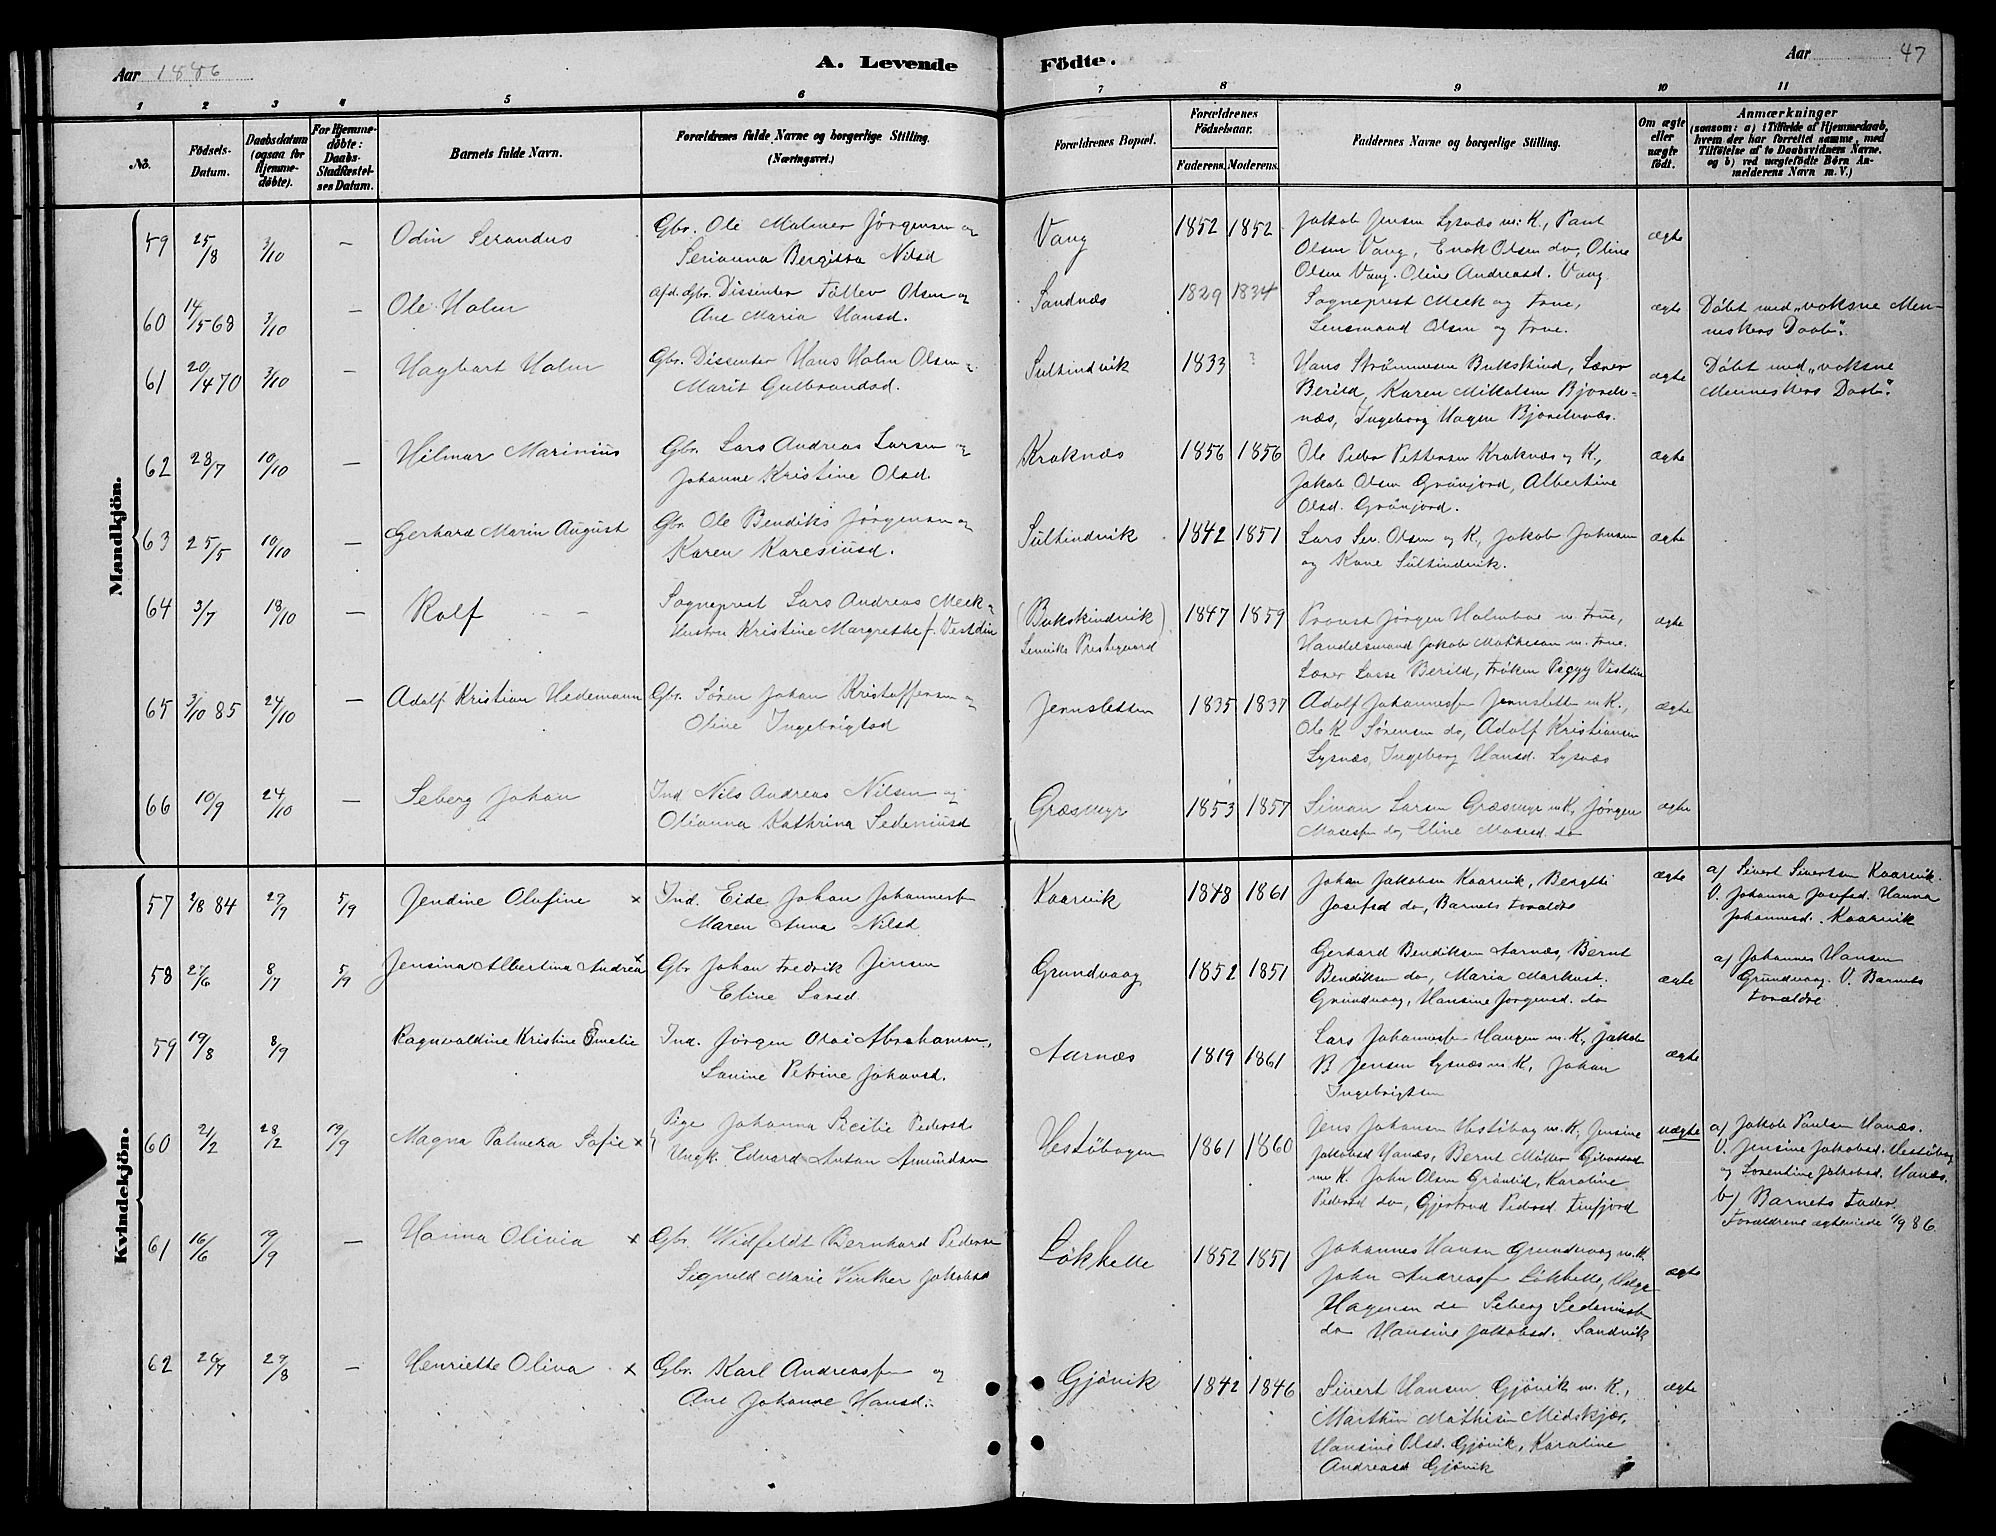 Aar 1886
A. Levende
Födte.
Aar
47
1 2 3 4 5 6 7 8 9 10 11
No.
Födsels-Datum.
Daabsdatum (ogsaa for Hjemme-døbte).
For Hjemme-døbte: Daabs-Stadfæstel-ses Datum.
Barnets fulde Navn.
Forældrenes fulde Navne og borgerlige Stilling. (Næringsvei.)
Forældrenes Bopæl.
Forældrenes Födselsaar.
Faderens. Moderens.
Faddernes Navne og borgerlige Stilling.
Om ægte eller uægte födt.
Anmærkninger
(saasom: a) i Tilfælde af Hjemmedaab, hvem der har forrettet samme, med Tilföielse af to Daabsvidners Navne, og b) ved uægtefödte Börn An-melderens Navn m. V.)
Mandkjön.
59 25/8 3/10 — Odin Serandus
Gbr. Ole Malmer Jørgensen og
Serianna Bergitta Nilsd
Vang 1852 1852
Jakob Jensen Lysnæs m: K., Paul
Olsen Vang, Enok Olsen do, Oline
Olsen Vang. Oline Andreasd. Vang.
ægte
60 14/5-68 3/10 — Ole Holm
Afd. Gbr. Dissenter Tollev Olsen og
Ane Maria Hansd.
Sandnæs 1829 1834
Sogneprest Meek og Frue,
Lensmand Olsen og Frue.
ægte
Døbt med „voksne Men-
neskers Daab".
61 20/4 70 3/10 Hagbart Holm
Gbr. Dissenter Hans Holm Olsen
Marit Gulbrandsd.
Sultindvik 1833 ?
Hans Strömmesen Bukskind, Lærer
Berild, Karen Mikalsen Bjorde-
næs, Ingeborg Hagen Bjordenæs.
ægte
Døbt med „voksne
Menneskers Daab".
62 28/7 10/10 — Hilmar Marinius
Gbr. Lars Andreas Larsen og
Johanne Kristine Olsd.
Kraknæs 1856 1856
Ole Peder Pettersen Kraknæs og K.,
Jakob Olsen Grönjord, Albertine
Olsd. Grönjord.
ægte
63 25/5 10/10 — Gerhard Marin August
Gbr. Ole Bendiks Jørgensen og
Karen Karesiusd.
Sultindvik 1842 1851
Lars Ser. Olsen og K., Jakob Johnsen
og Kone Sultindvik.
ægte
64 3/7 18/10 — Rolf
Sogneprest Lars Andreas Meek
Hustru Kristine Margrethe f. Vestdin
(Bukskindvik)
Lenviks Prestegaard
1847 1859
Provst Jørgen Holmboe m. Frue,
Handelsmand Jakob Mathesen m. Frue.
Lærer Lasse Berild, Frøken Peggy Vestdin
ægte
65 3/10 85 24/10 — Adolf Kristian Hedemann
Gbr. Sören Johan Kristoffersen og
Oline Ingebrigtsd
Jernsletten 1835 1837
Adolf Johannesen Jernslett m K.,
Ole K Sørensen do, Adolf Kristiansen
Lysnæs, Ingeborg Hansd. Lysnæs
ægte
66 10/9 24/10 — Seberg Johan
Ind. Nils Andreas Nilsen og
Olianna Kathrina Sedeniusd
Græsmyr 1853 1857
Simon Larsen Græsmyr m K, Jörgen
Mosesen do, Eline Mosesd. do
ægte
Kvindekjön.
57 2/8 84 29/9 5/9 Jendine Olufine x
Ind. Eide Johan Johannesen
Maren Anna Nilsd
Kaarvik 1848 1861
Johan Jakobsen Kaarvik, Bergitte
Josefsd do, Barnets Forældre
ægte
a) Sivert Sivertsen Kaarvik.
V. Johanna Josefsd. Hanna
Johannesd. Kaarvik
58 27/6 8/7 5/9 Jensina Albertina Andrea x
Gbr Johan Fredrik Jensen
Eline Larsd.
Grundvaag 1852 1851
Gerhard Bendiksen Aarnæs, Bernt
Bendiksen do, Maria Markust.
Grundvaag, Hansine Jorgensd. do
ægte
a) Johannes Hansen
Grundvaag V. Barnets
Forældre
59 19/8 8/9 Ragnvaldine Kristine Emelie
Ind. Jörgen Olai Abrahamsen,
Lanine Petrine Johansd.
Aarnæs 1819 1861
Lars Johannesen Haugen m. K., Jakob
B Jensen Lysnæs m. K, Johan
Ingebrigtsen
ægte
60 21/2 28/2 19/9 Magna Palmera Sofie x
Pige Johanna Sicilie Pedersd
Ungk. Edvard Antan Amundsen
Vestöbogen 1861 1860
Jens Johansen Vestöbog m. K, Jensine
Jakobsd Hanæs, Bernt Möller Gibostad
m K. John Olsen Grönlid, Karoline
Pedersd do, Gjertrud Pedersd. Finfjord
uægte
a) Jakob Paulsen Hanæs.
V. Jensine Jakobsd. Vestöbog
og Lorentine Jakobsd. Hanæs.
b) Barnets Fader.
Forældrene ægteviede 19/9 86.
61 16/6 19/9 — Hanna Olivia x
Gbr. Widfeldt Bernhard Pedersen
Signild Marie Vinther Jakobsd
Lökhelle 1852 1851
Johannes Hansen Grundvaag m. K.
John Andreasen Lökhelle, Helge
Hagensen do Seberg Sedeniusen
do Hansine Jakobsd. Sandvik
ægte
62 26/7 29/8 — Henriette Oliva x
Gbr. Karl Andreasen og
Ane Johanne Hansd.
Gjövik 1842 1846
Sivert Hansen Gjövik m. K.,
Marthin Mathisen Midskjær,
Hansine Olsd. Gjövik, Karoline
Andreasd Gjövik
ægte